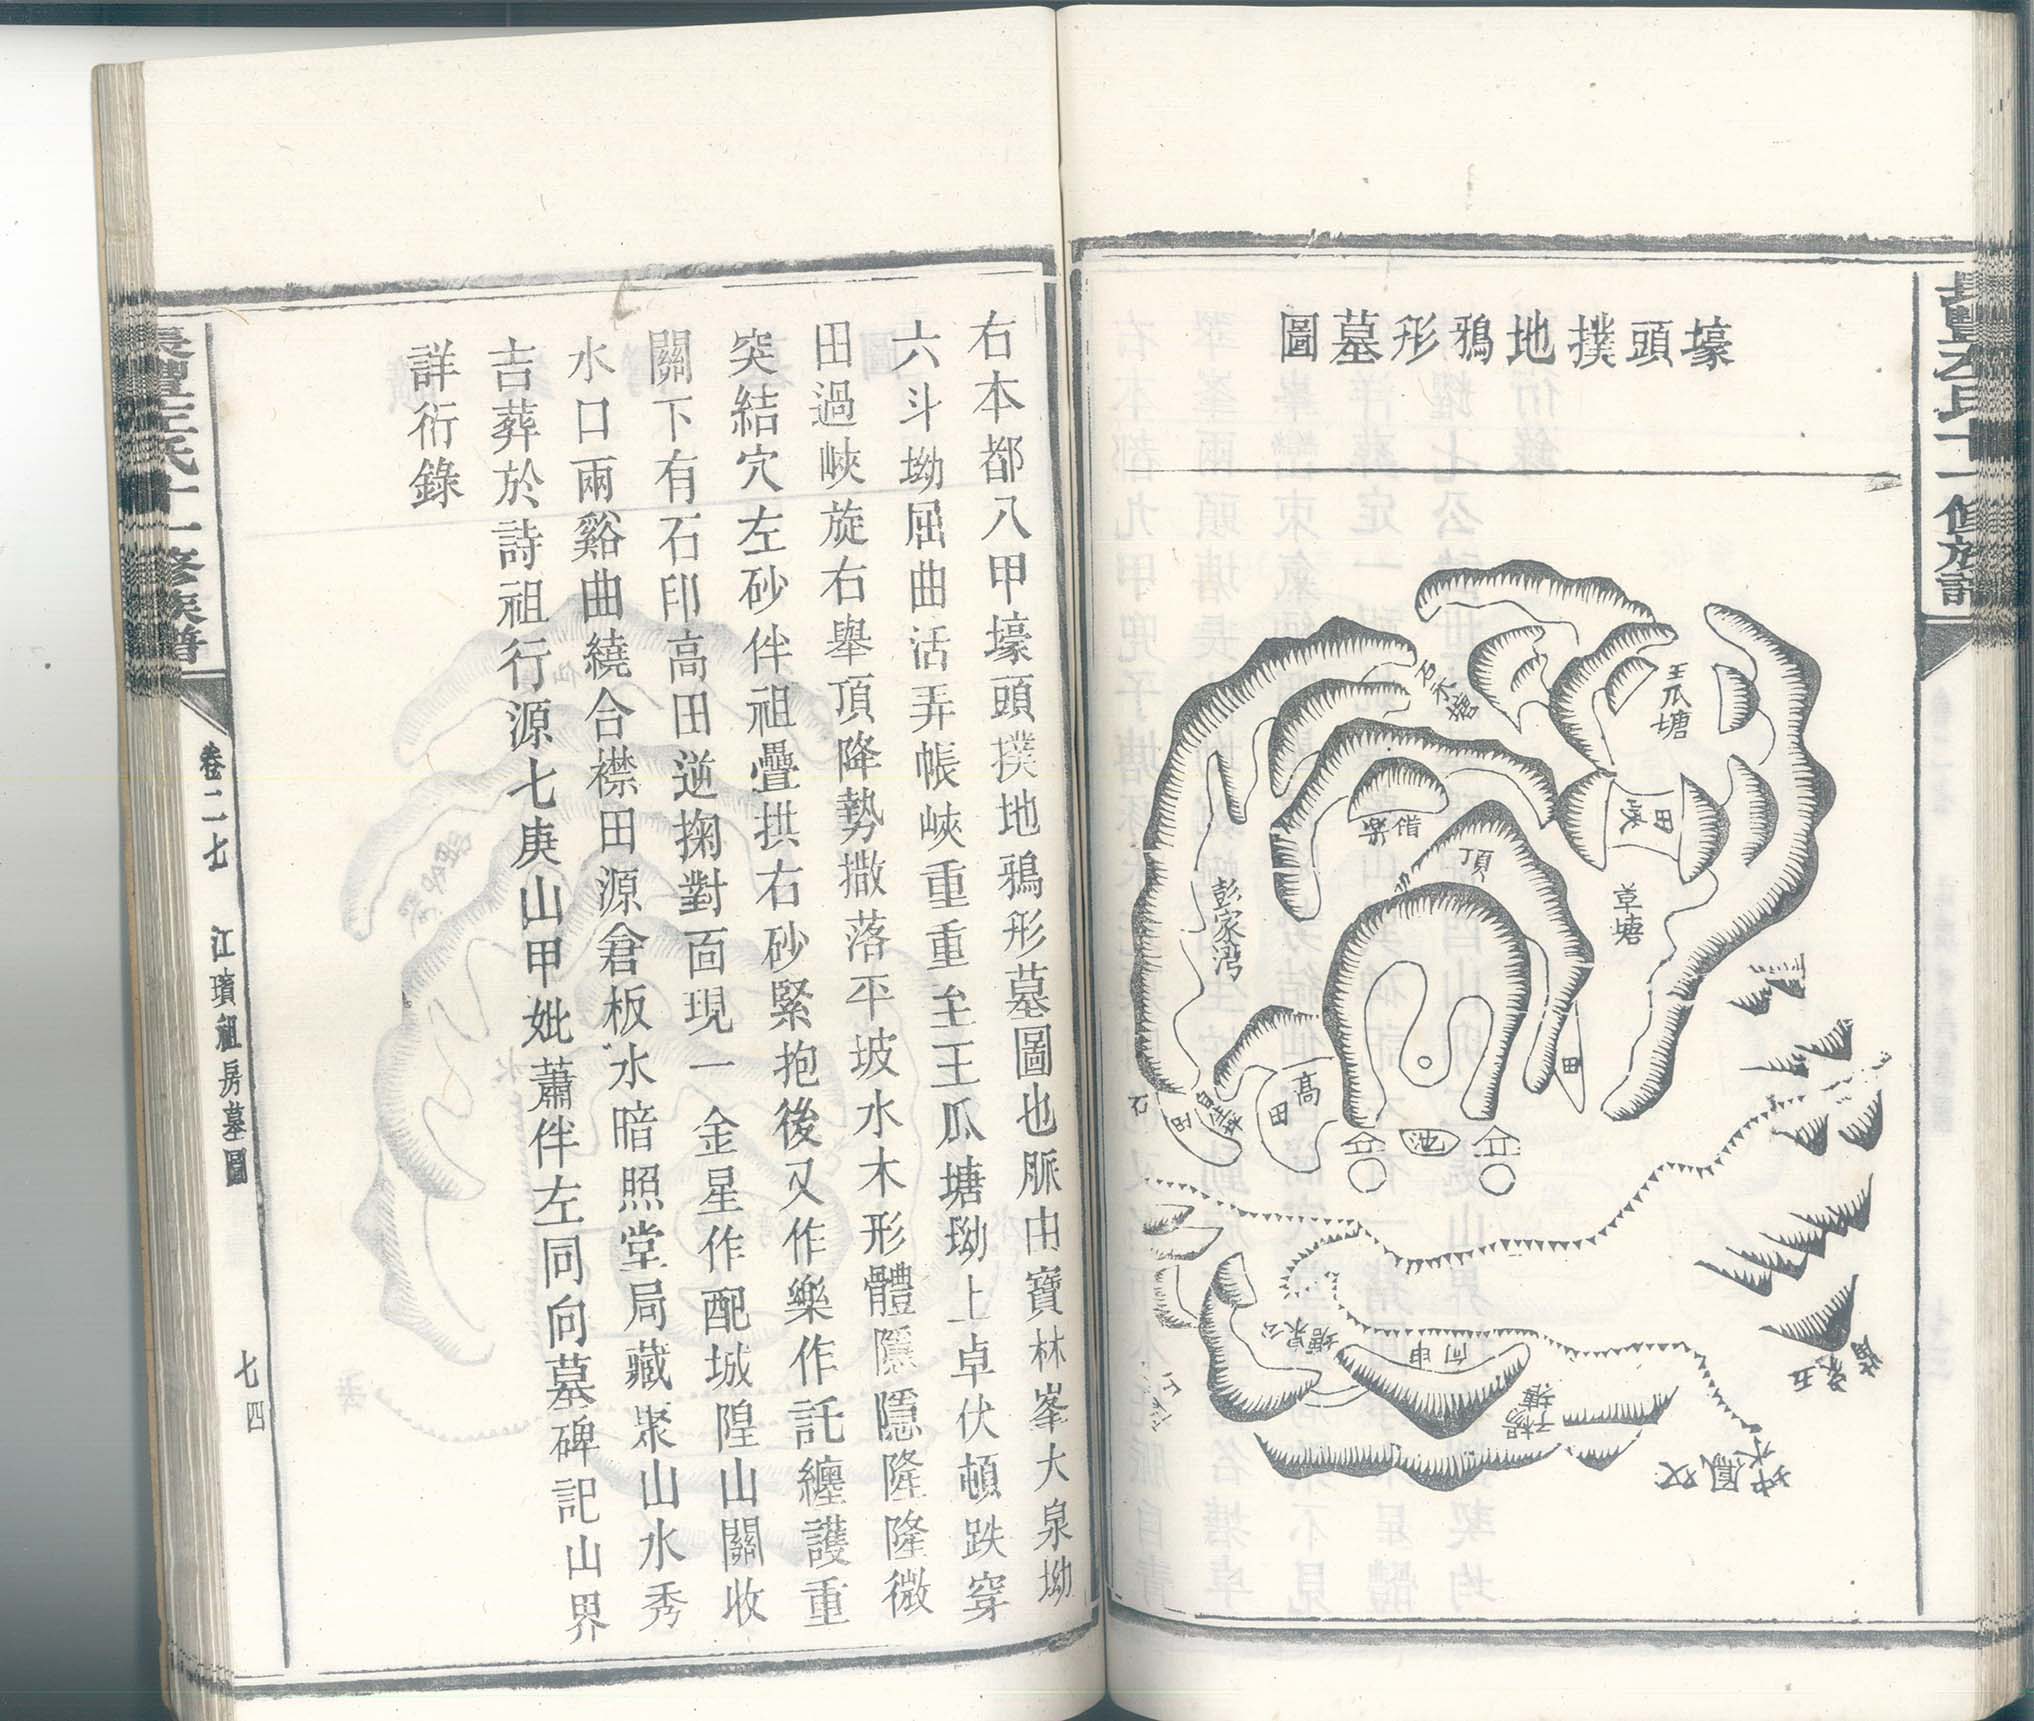 壕頭撲地鴉形墓圖
王瓜塘
石木塘
田峽
草塘
樂
借
頂
彭家湾
田
高田
石
田
池
向申
楊子塘
右本都八甲壕頭撲地鴉形墓圖也脈由寶林峯大泉坳
六斗坳屈曲活弄帳峽重重至王瓜塘坳上卓伏頓跌穿
田過峽旋右舉頂降勢撒落平坡水木形體隱隱隆隆微
突結穴左砂伴祖疊拱右砂緊抱後又作樂作託纏護重
關下有石印高田逆掬對面現一金星作配城隍山關收
水口兩谿曲繞合襟田源倉板水暗照堂局藏聚山水秀
吉葬於詩祖行源七庚山甲妣蕭伴左同向墓碑記山界
詳衍錄
長豐左氏十一修族譜
卷二七
江璜祖房墓圖
七四